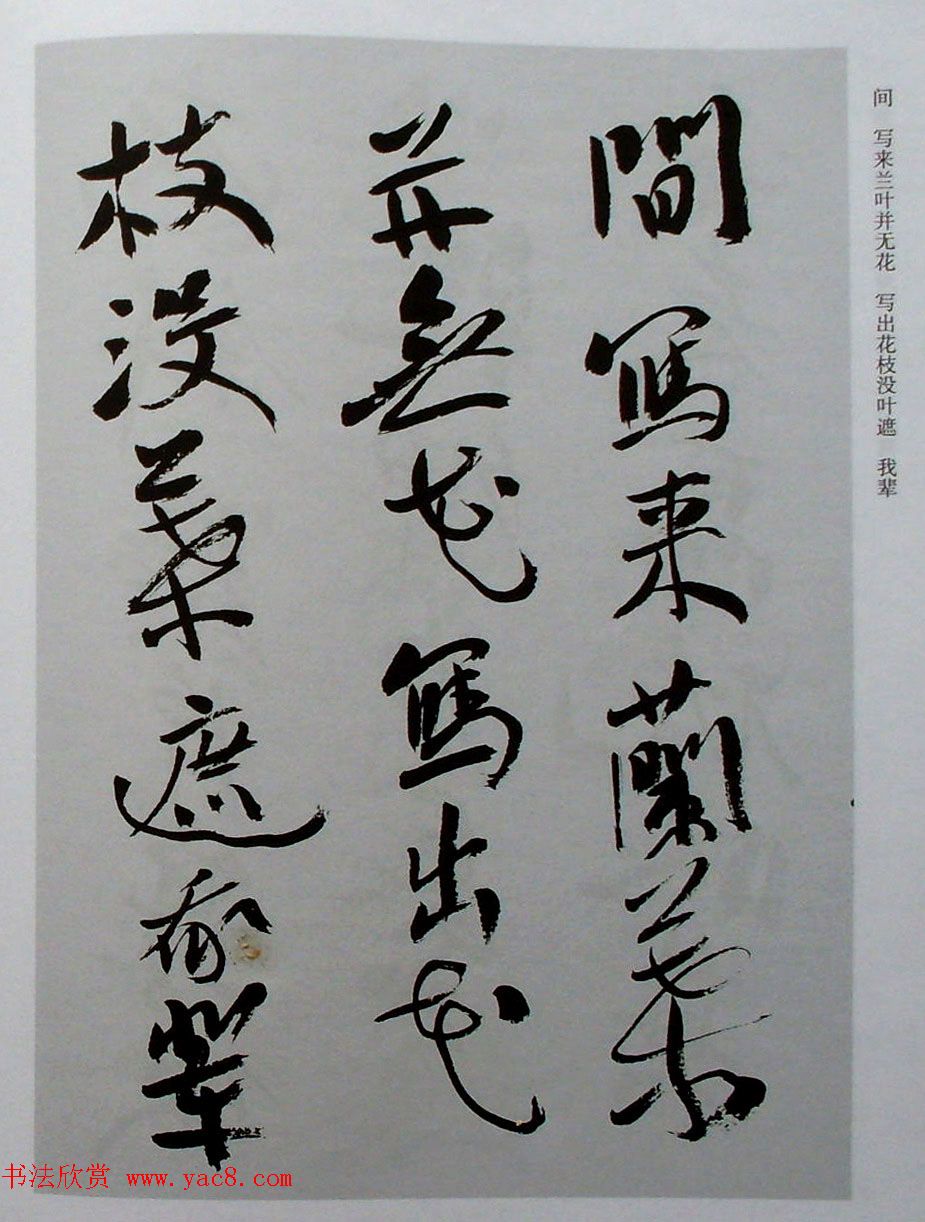 間寫来蘭葉
并無花寫出花
枝没葉遮我輩
间 写来兰叶并无花 写出花枝没叶遮 我辈
书法欣赏 www.yac8.com